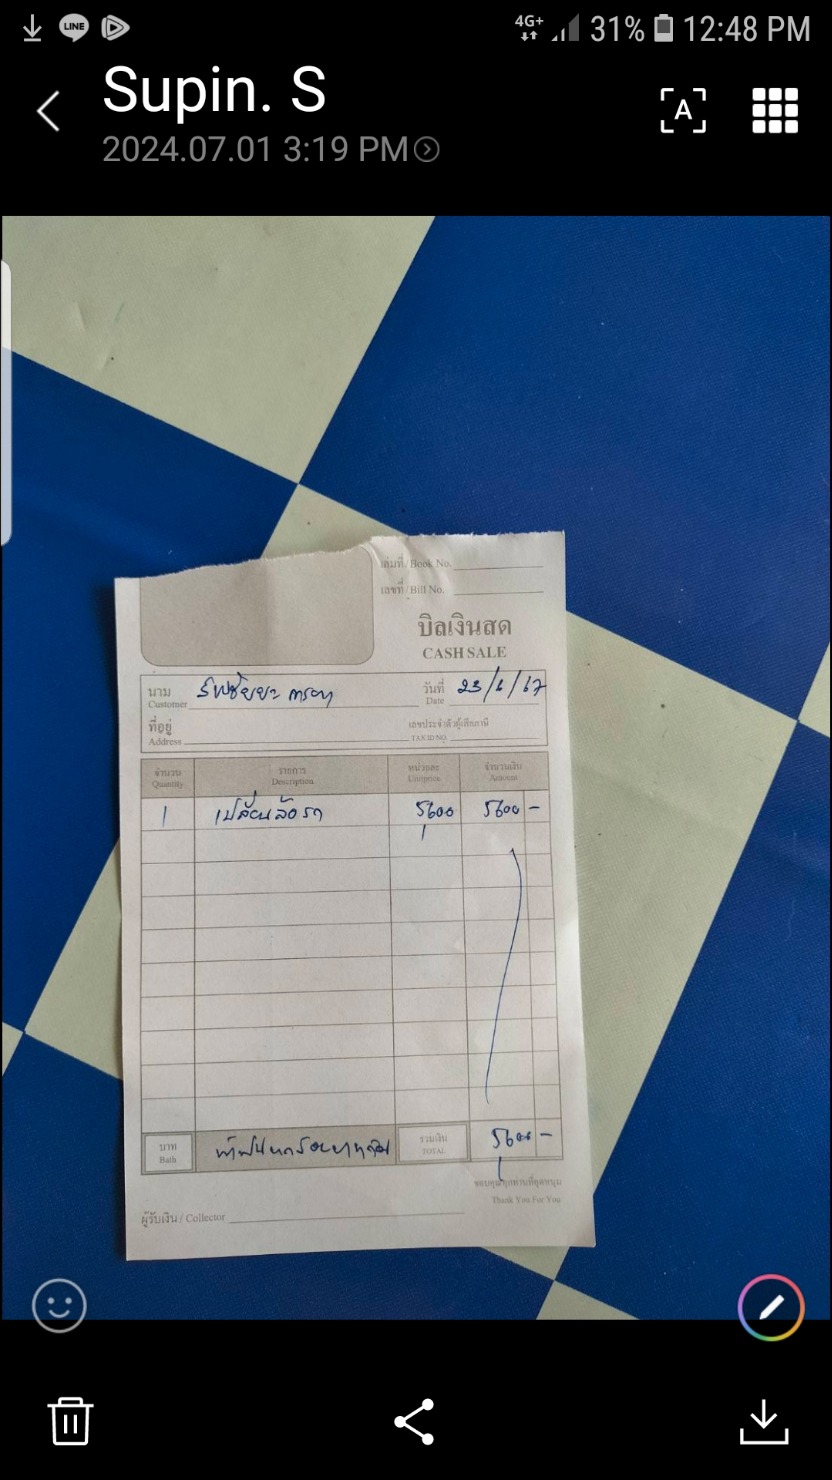 4G+ 31% 12:48 PM
LINE
Supin. S
2024.07.01 3:19 PM
A
เล่มที่/Book No.
เลขที่/Bill No.
บิลเงินสด
CASH SALE
นาม
Customer
วันที่ 23/6/67
Date
ที่อยู่
Address
เลขประจำตัวผู้เสียภาษี
TAX ID NO.
จำนวน รายการ หน่วยละ จำนวนเงิน
Quantity Description Unitprice Amount
1 เปลี่ยนล้อรถ 5600 5600 -
บาท ห้าพันหกร้อยบาทถ้วน รวมเงิน 5600 -
Bath TOTAL
ขอบคุณทุกท่านที่อุดหนุน
Thank You For You
ผู้รับเงิน / Collector